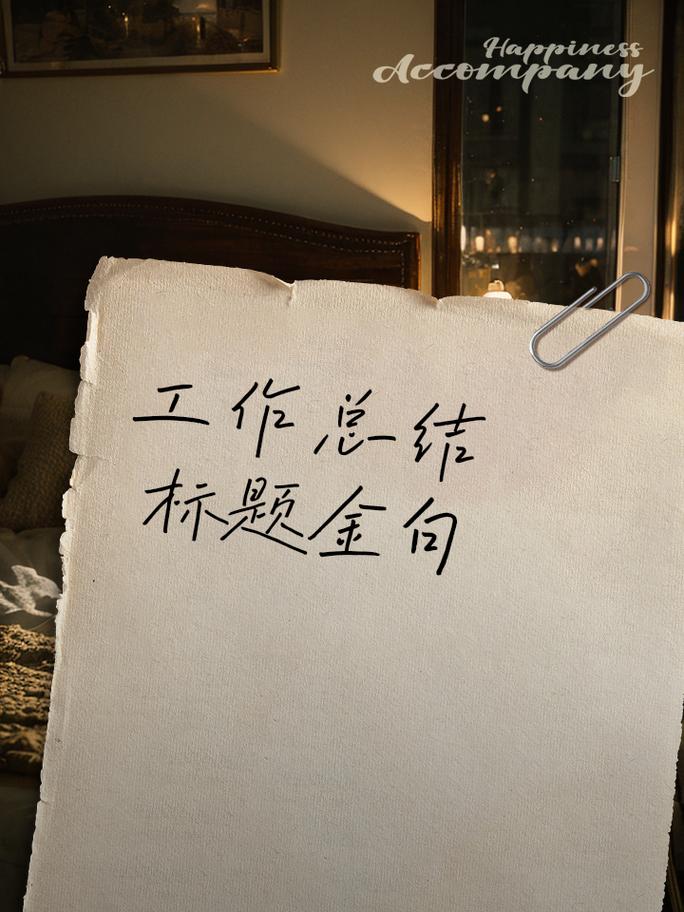 Happiness
Accompany
工作总结
标题金句